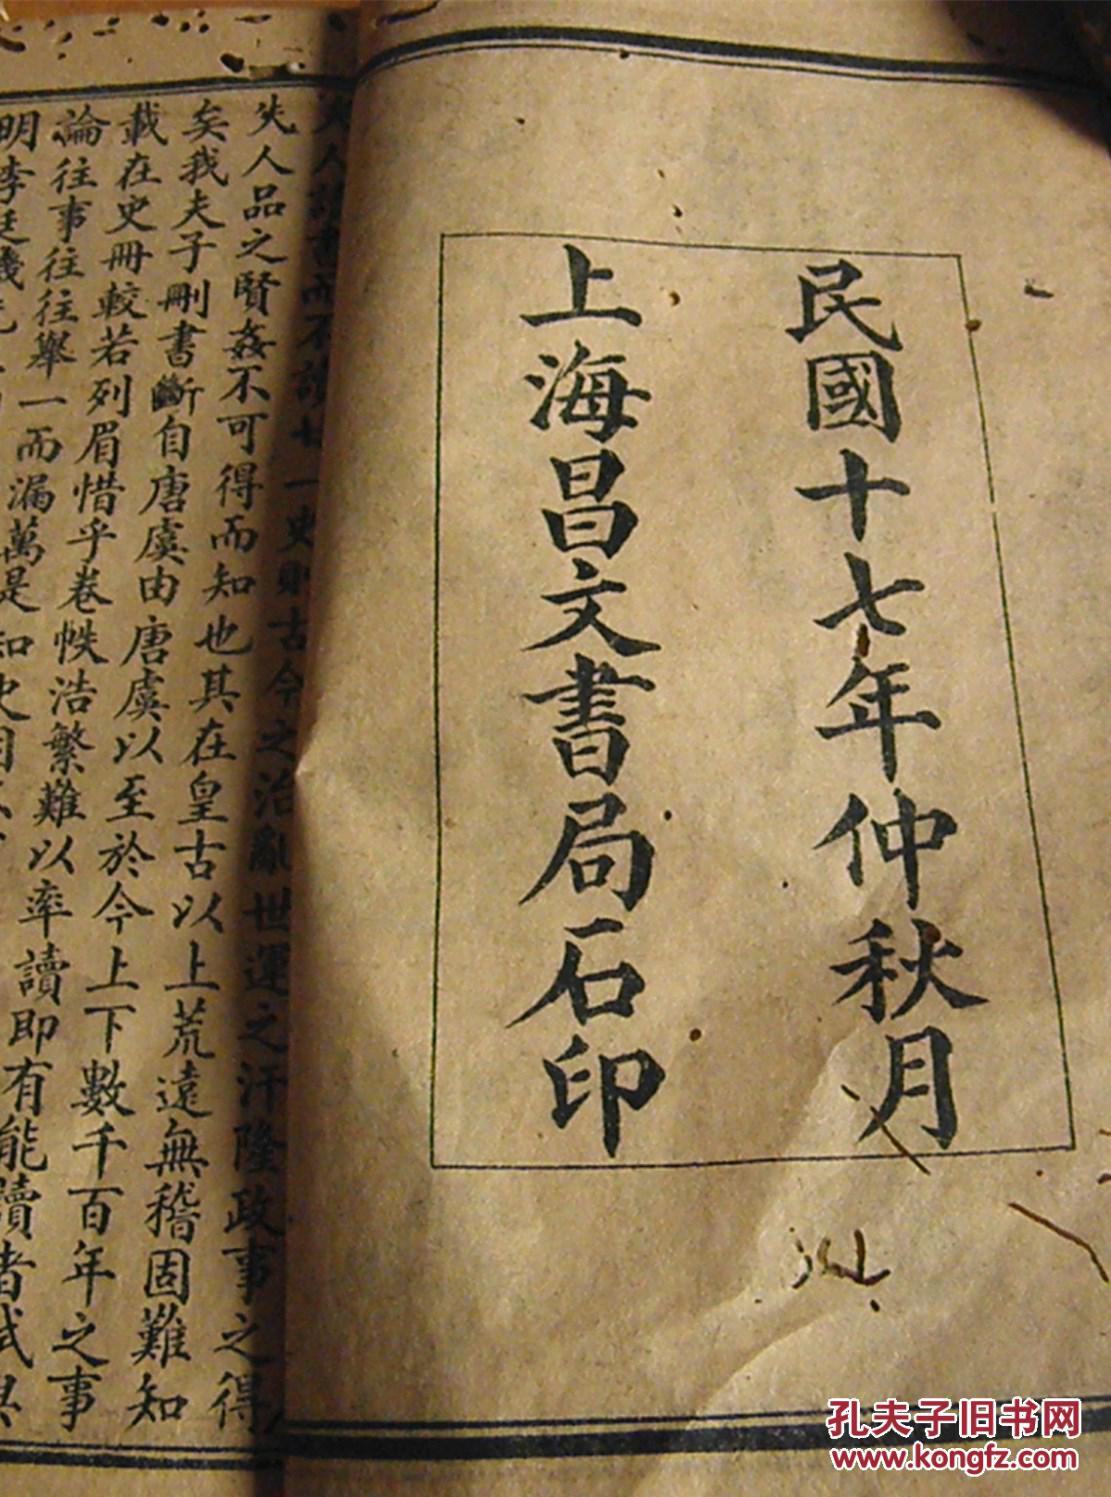 民國十七年仲秋月
上海昌文書局石印
人讀書而不讀廿一史則古今之治亂世運之汙隆政事之得
失人品之賢姦不可得而知也其在皇古以上荒遠無稽固難知
矣我夫子刪書斷自唐虞由唐虞以至於今上下數千百年之事
載在史冊較若列眉惜乎卷帙浩繁難以率讀即有能讀者試與
論往事往往舉一而漏萬是知史
明李廷機
孔夫子旧书网
www.kongfz.com